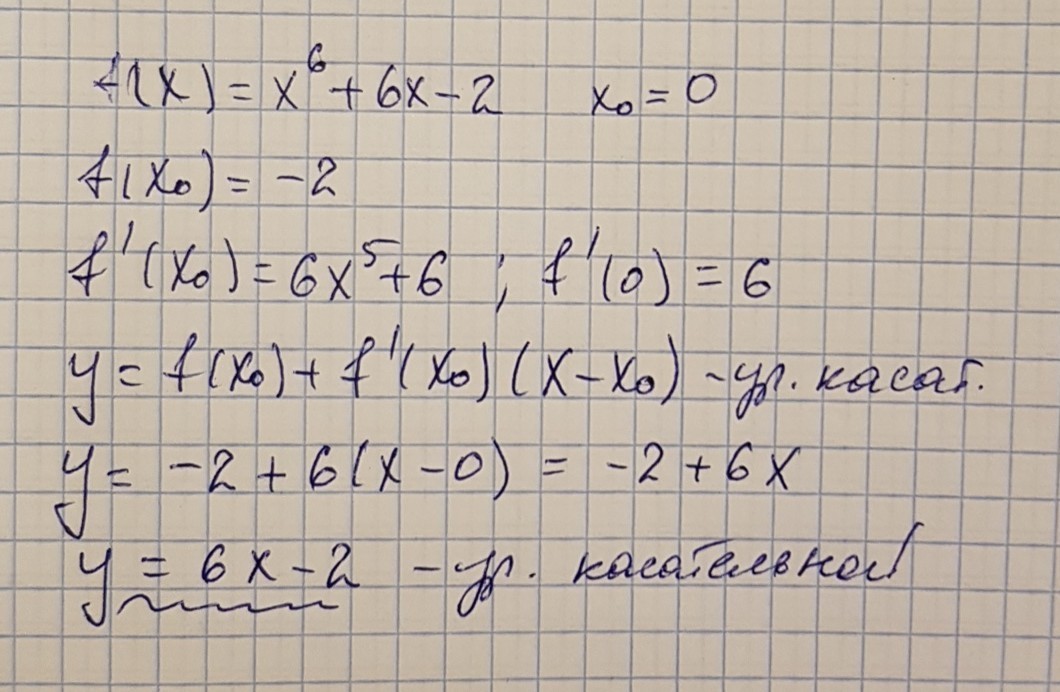 f(x) = x⁶ + 6x - 2 x₀ = 0
f(x₀) = -2
f'(x₀) = 6x⁵ + 6 ; f'(0) = 6
y = f(x₀) + f'(x₀)(x - x₀) - ур. касат.
y = -2 + 6(x - 0) = -2 + 6x
y = 6x - 2 - ур. касательной